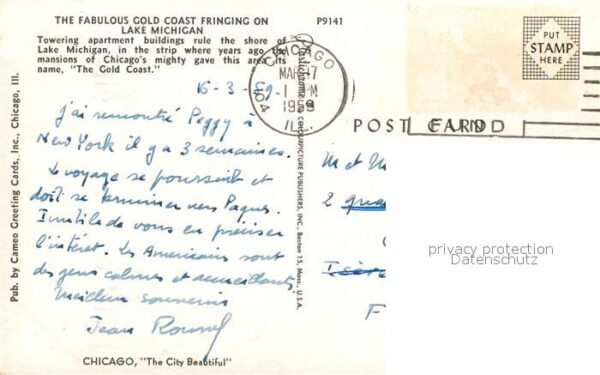 THE FABULOUS GOLD COAST FRINGING ON
LAKE MICHIGAN
P9141
Towering apartment buildings rule the shore of
Lake Michigan, in the strip where years ago the
mansions of Chicago's mighty gave this area its
name, "The Gold Coast."
CHICAGO
MAR 17
1 PM
1959
ILL.
PUT
STAMP
HERE
POST CARD
16-3-59.
j'ai rencontré Peggy à
New York il y a 3 semaines.
Le voyage se poursuit et
doit se terminer vers Paques.
Inutile de vous en préciser
l'intérêt. Les Américains sont
des gens calmes et accueillants
Meilleurs souvenirs
Jean
M et M
2 quai
Isère
F
privacy protection
Datenschutz
Pub. by Cameo Greeting Cards, Inc., Chicago, Ill.
COLOURPICTURE PUBLISHERS, INC., Boston 15, Mass., U.S.A.
CHICAGO, "The City Beautiful"